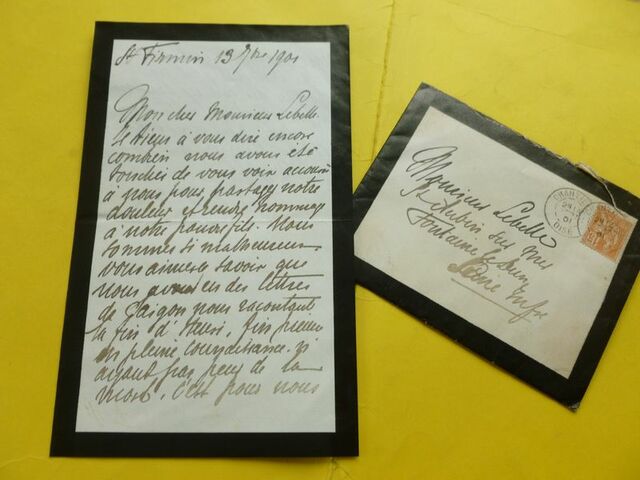 St Firmin 13 7bre 1901
Mon cher Monsieur Lebelle
Je tiens à vous dire encore
combien nous avons été
touchés de vous voir accourir
à nous pour partager notre
douleur et rendre hommage
à notre pauvre fils. Nous
sommes si malheureux
vous aimerez savoir que
nous avons eu des lettres
de Saigon nous racontant
la fin d'Henri, fin pieuse
en pleine connaissance. n'
ayant pas peur de la
mort. C'est pour nous
Monsieur Lebelle
St Aubin sur mer
Fontaine le Dun
Seine Infre
CHANTILLY
01
OISE